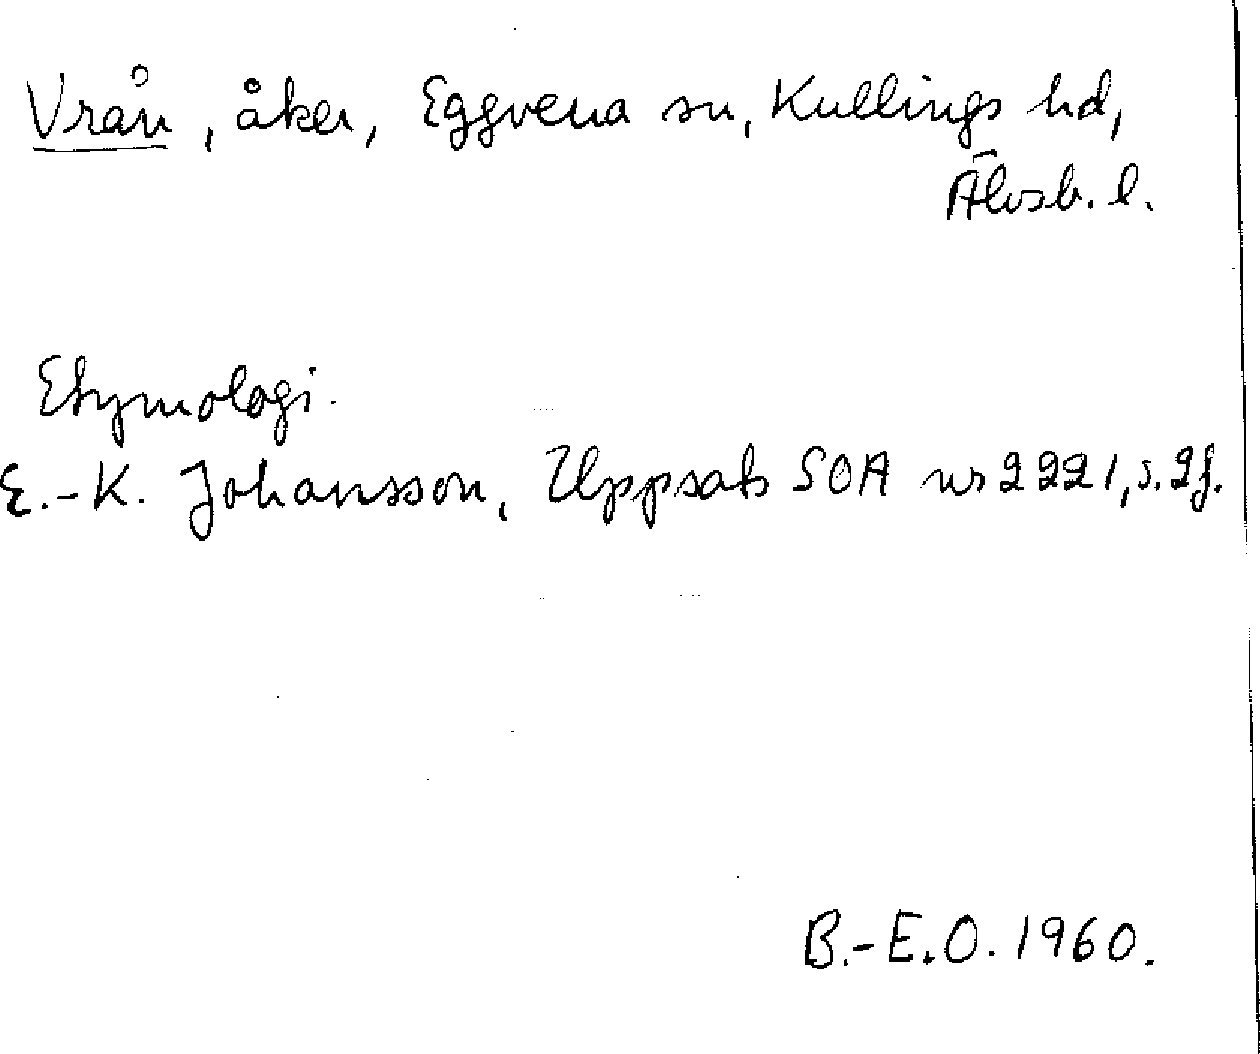 Vrån, åker, Eggvena sn, Kullings hd,
Älvsb. l.
Etymologi.
E.-K. Johansson, Uppsats SOA nr 2221, s. 2f.
B.-E.O. 1960.